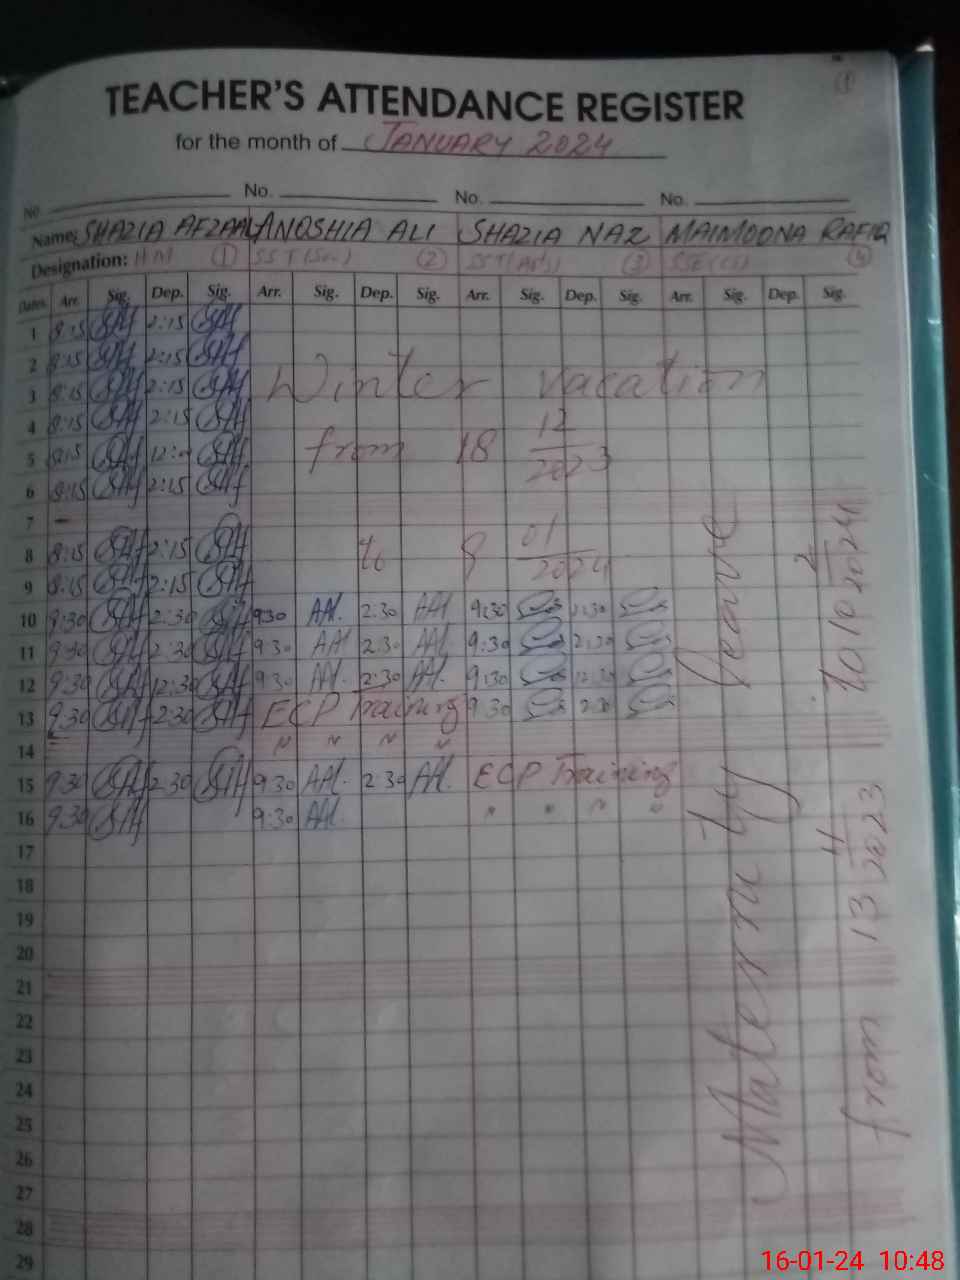 TEACHER'S ATTENDANCE REGISTER
for the month of JANUARY 2024
No. No. No. No.
Name: SHAZIA AFZAAL ANOSHIA ALI SHAZIA NAZ MAIMOONA RAFIQ
Designation: HM (1) SST(Sci) (2) SST(Arts) (3) SSE(CS) (4)
Dates Arr. Sig. Dep. Sig. Arr. Sig. Dep. Sig. Arr. Sig. Dep. Sig. Arr. Sig. Dep. Sig.
1 8:15 2:15
2 8:15 2:15
3 8:15 2:15 Winter vacation
4 8:15 2:15
5 8:15 from 18 12/2023
6 8:15 2:15
7 –
8 8:15 2:15 to 9 01/2024
9 8:15 2:15
10 9:30 2:30 9:30 AAl. 2:30 AAl. 9:30
11 9:30 2:30 9:30 AAl 2:30 AAl. 9:30 2:30
12 9:30 12:30 9:30 AAl. 2:30 AAl. 9:30 12:30
13 9:30 2:30 ECP Training 9:30 2:30
14 " " " "
15 9:30 2:30 9:30 AAl. 2:30 AAl. ECP Training
16 9:30 9:30 AAl. " " " "
17
18
19
20
21
22
23
24
25
26
27
28
29
Maternity leave
from 13 4/2023 To 10 2/2024
16-01-24 10:48